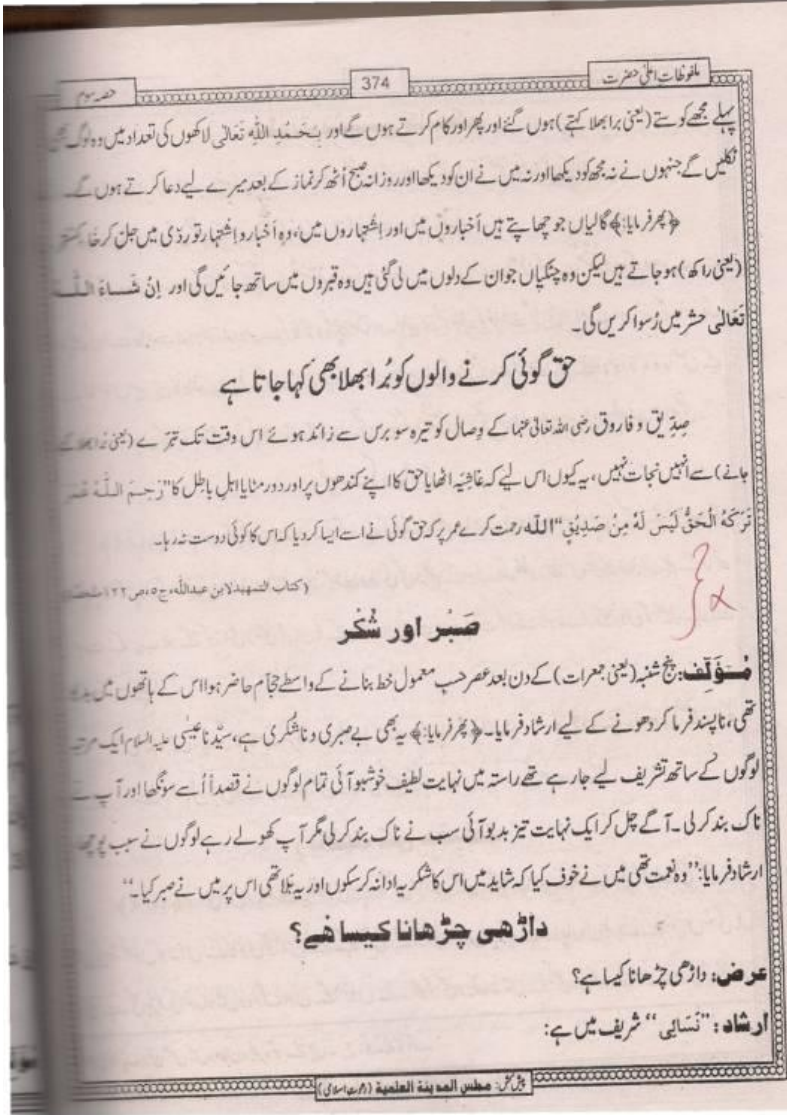 ملفوظاتِ اعلیٰ حضرت
374
حصہ سوم
پہلے مجھے کوستے (یعنی برا بھلا کہتے) ہوں گے اور پھر اور کام کرتے ہوں گے اور بِحَمْدِ اللّٰهِ تَعَالٰی لاکھوں کی تعداد میں وہ لوگ بھی
نکلیں گے جنہوں نے نہ مجھ کو دیکھا اور نہ میں نے ان کو دیکھا اور روزانہ صبح اُٹھ کر نماز کے بعد میرے لیے دعا کرتے ہوں گے۔
﴿پھر فرمایا:﴾ گالیاں جو چھاپتے ہیں اَخباروں میں اور اِشتہاروں میں، وہ اَخبار و اِشتہار تو ردّی میں جل کر خاکستر
(یعنی راکھ) ہو جاتے ہیں لیکن وہ چٹکیاں جو ان کے دلوں میں لی گئی ہیں وہ قبروں میں ساتھ جائیں گی اور اِنْ شَاءَ اللّٰهُ
تَعَالٰی حشر میں رُسوا کریں گی۔
حق گوئی کرنے والوں کو بُرا بھلا بھی کہا جاتا ہے
صِدّیق و فاروق رضی اللہ تعالیٰ عنہما کے وِصال کو تیرہ سو برس سے زائد ہوئے اس وقت تک تبرّے (یعنی بُرا بھلا کہے
جانے) سے انہیں نجات نہیں، یہ کیوں اس لیے کہ غاشِیَہ اٹھایا حق کا اپنے کندھوں پر اور دور مٹایا اہلِ باطِل کا ”رَحِمَ اللّٰهُ عُمَرَ
تَرَكَهُ الْحَقُّ لَيْسَ لَهُ مِنْ صَدِيْقٍ“ اللّٰہ رحمت کرے عمر پر کہ حق گوئی نے اسے ایسا کر دیا کہ اس کا کوئی دوست نہ رہا۔
(کتاب التمہید لابن عبداللہ، ج۵، ص۱۲۲
صَبْر اور شُکْر
مُؤَلِّف: پنج شنبہ (یعنی جمعرات) کے دن بعد عصر حسب معمول خط بنانے کے واسطے حجّام حاضر ہوا اس کے ہاتھوں میں بدبو
تھی، ناپسند فرما کر دھونے کے لیے ارشاد فرمایا۔ ﴿پھر فرمایا:﴾ یہ بھی بے صبری و ناشکری ہے، سیّدنا عیسیٰ علیہ السلام ایک مرتبہ
لوگوں کے ساتھ تشریف لیے جا رہے تھے راستہ میں نہایت لطیف خوشبو آئی تمام لوگوں نے قصداً اُسے سونگھا اور آپ نے
ناک بند کر لی۔ آگے چل کر ایک نہایت تیز بدبو آئی سب نے ناک بند کر لی مگر آپ کھولے رہے لوگوں نے سبب پوچھا
ارشاد فرمایا: ”وہ نعمت تھی میں نے خوف کیا کہ شاید میں اس کا شکریہ ادا نہ کر سکوں اور یہ بَلا تھی اس پر میں نے صبر کیا۔“
داڑھی چڑھانا کیسا ھے؟
عرض: داڑھی چڑھانا کیسا ہے؟
ارشاد: ”نَسَائی“ شریف میں ہے:
پیش کش: مجلس المدینۃ العلمیۃ (دعوتِ اسلامی)